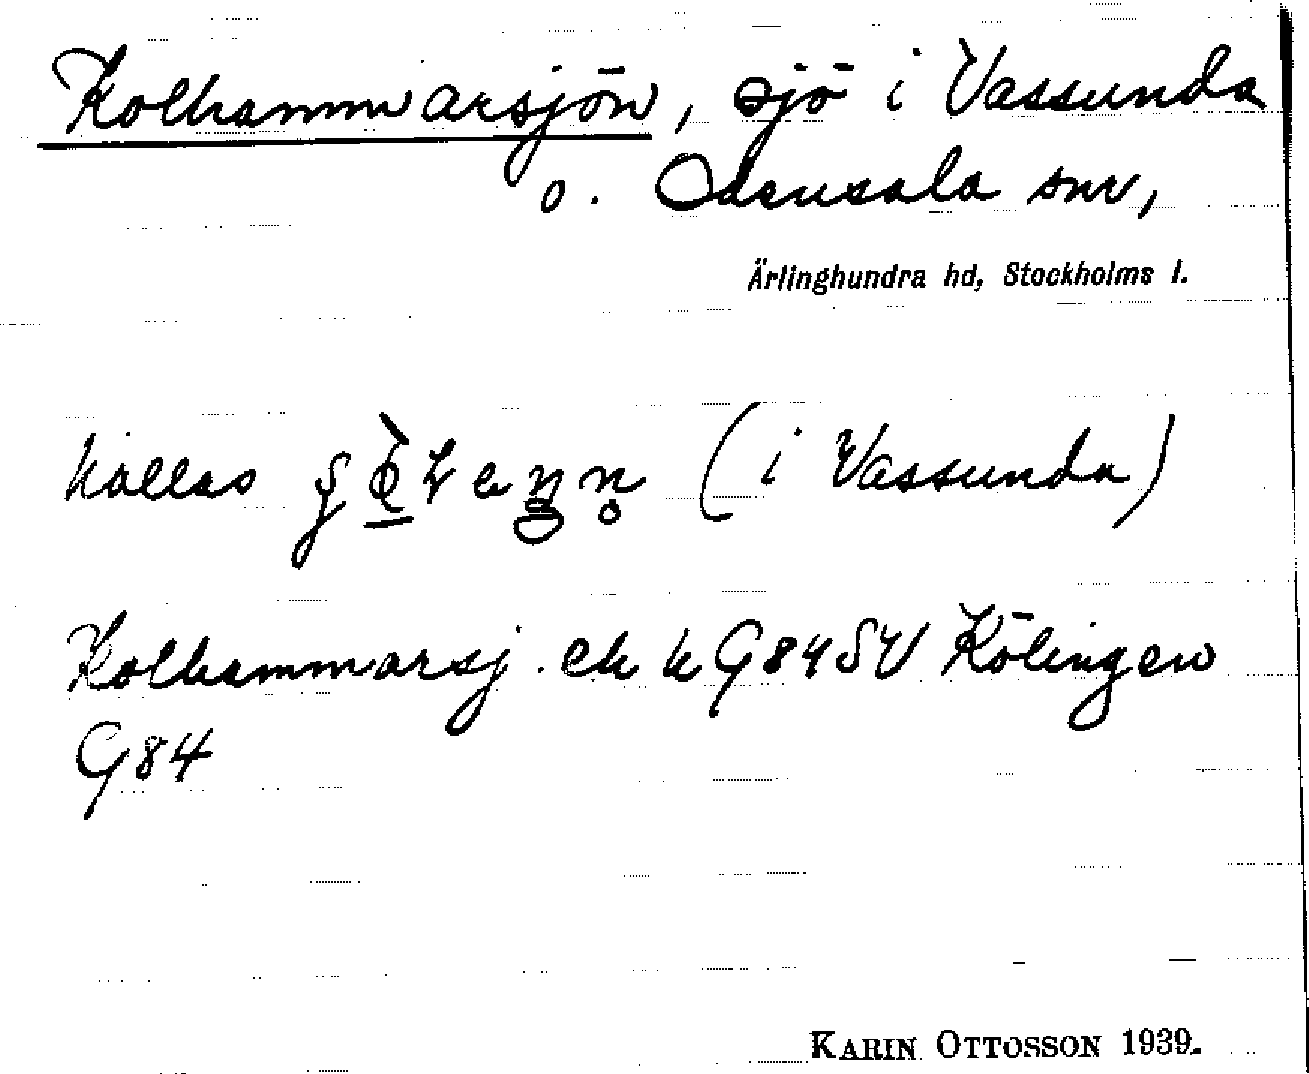 Kolhammarsjön, sjö i Vassunda
o. Odensala snr,
Ärlinghundra hd, Stockholms l.
kallas (i Vassunda)
Kolhammarsj. ek k G84SV Kölingen
G84
KARIN OTTOSSON 1939.